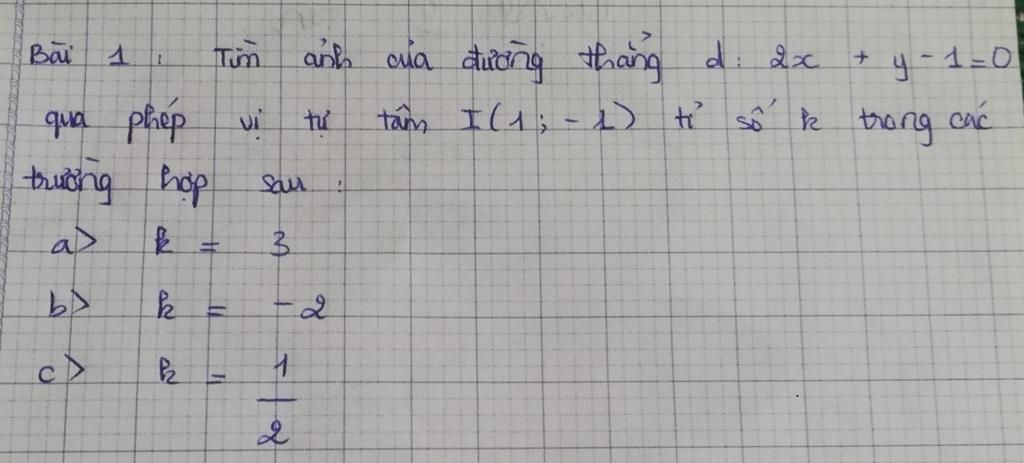 Bài 1 : Tìm ảnh của đường thẳng d: 2x + y - 1 = 0
qua phép vị tự tâm I(1; -1) tỉ số k trong các
trường hợp sau :
a> k = 3
b> k = -2
c> k = 1/2